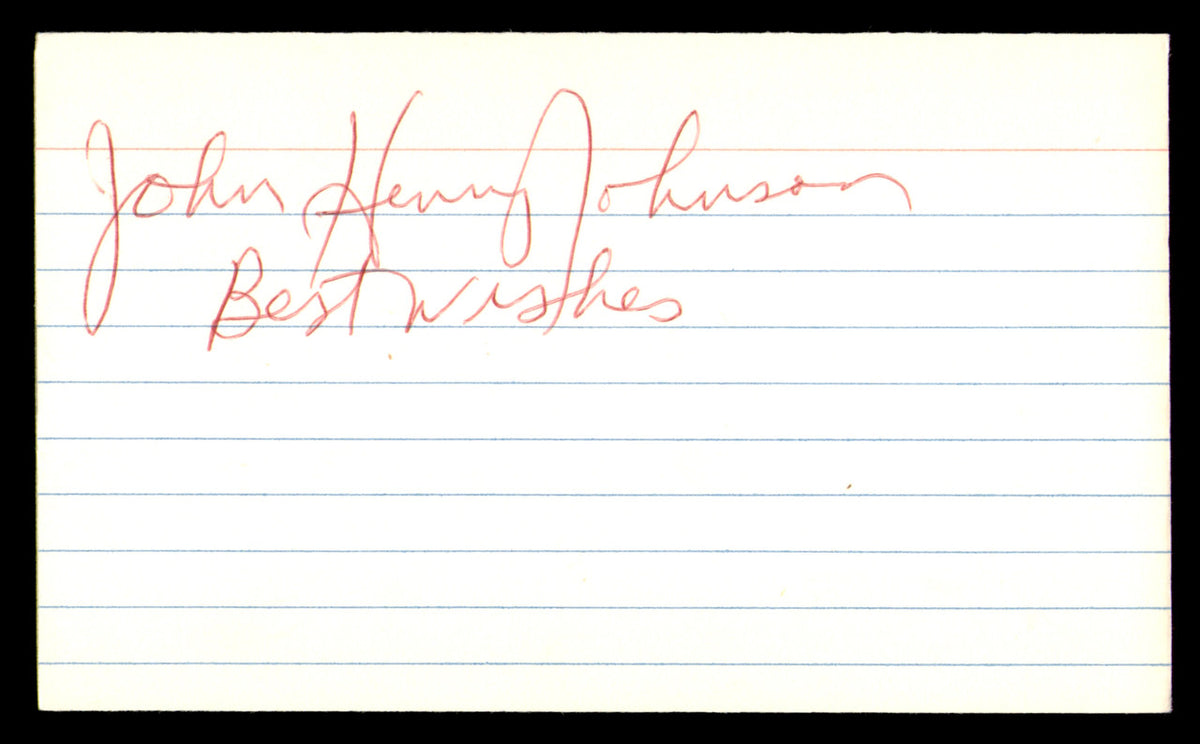 John Henry Johnson
Best Wishes